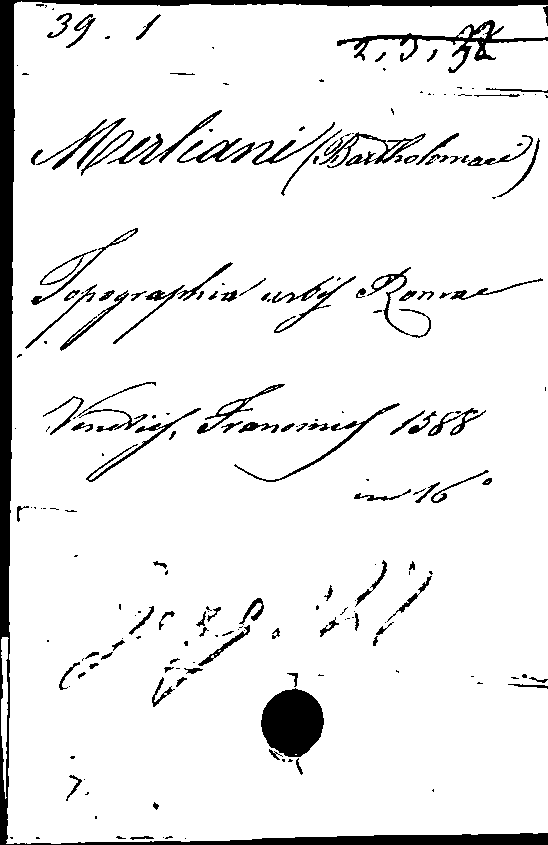 39. 1
2. 3. 32
Merliani (Bartholomaei)
Topographia urbis Romae
Venetiis, Franciscus 1588
in 16°
7.